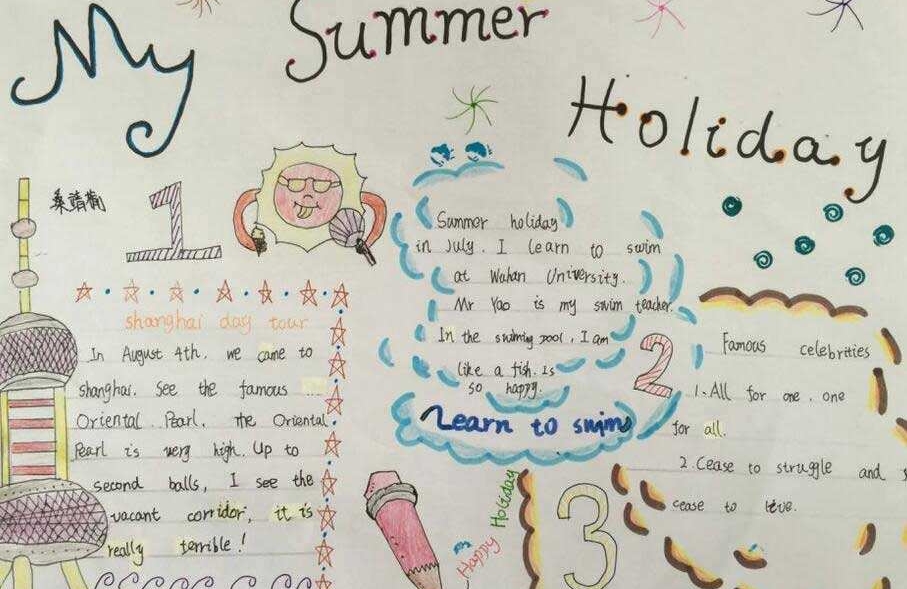 My Summer Holiday
1
shanghai day tour
In August 4th, we came to
shanghai. See the famous ...
Oriental Pearl, the Oriental
Pearl is very high. Up to
second balls, I see the
vacant corridor, it is
really terrible!
Summer holiday
in July. I learn to swim
at Wuhan University.
Mr Yao is my swim teacher.
In the swiming pool, I am
like a fish. Is
so happy.
2
Learn to swim
Happy Holiday
3
Famous celebrities
1. All for one, one
for all.
2. Cease to struggle and
cease to live.